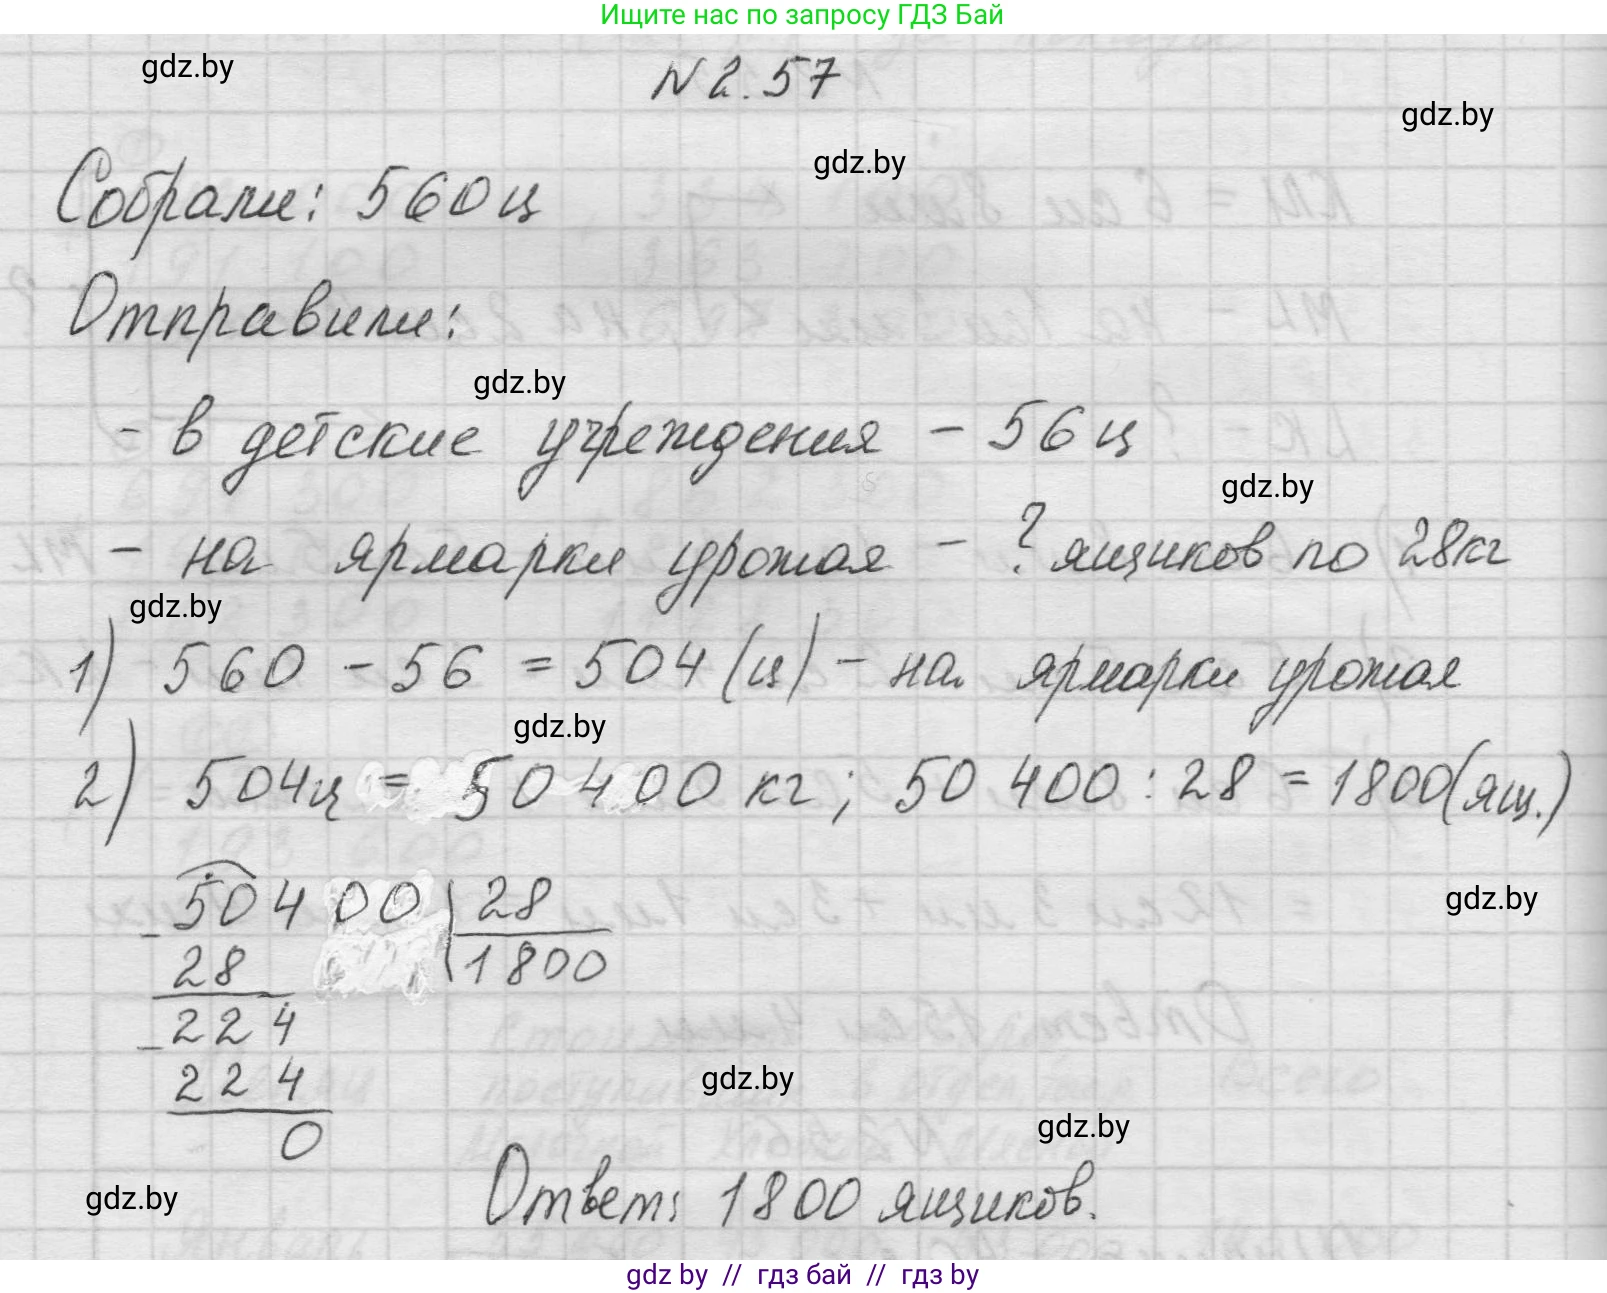 Ищите нас по запросу ГДЗ Бай
gdz.by
N 2.57
gdz.by
gdz.by
Собрали: 560 ц
Отправили:
gdz.by
- в детские учреждения - 56 ц
gdz.by
- на ярмарки урожая - ? ящиков по 28кг
gdz.by
1) 560 - 56 = 504 (ц) - на ярмарки урожая
gdz.by
2) 504ц = 50 400 кг; 50 400 : 28 = 1800 (ящ.)
50400 28
gdz.by
- 28 1800
224
- 224
gdz.by
0
gdz.by
gdz.by
Ответ: 1800 ящиков.
gdz by // гдз бай // гдз by